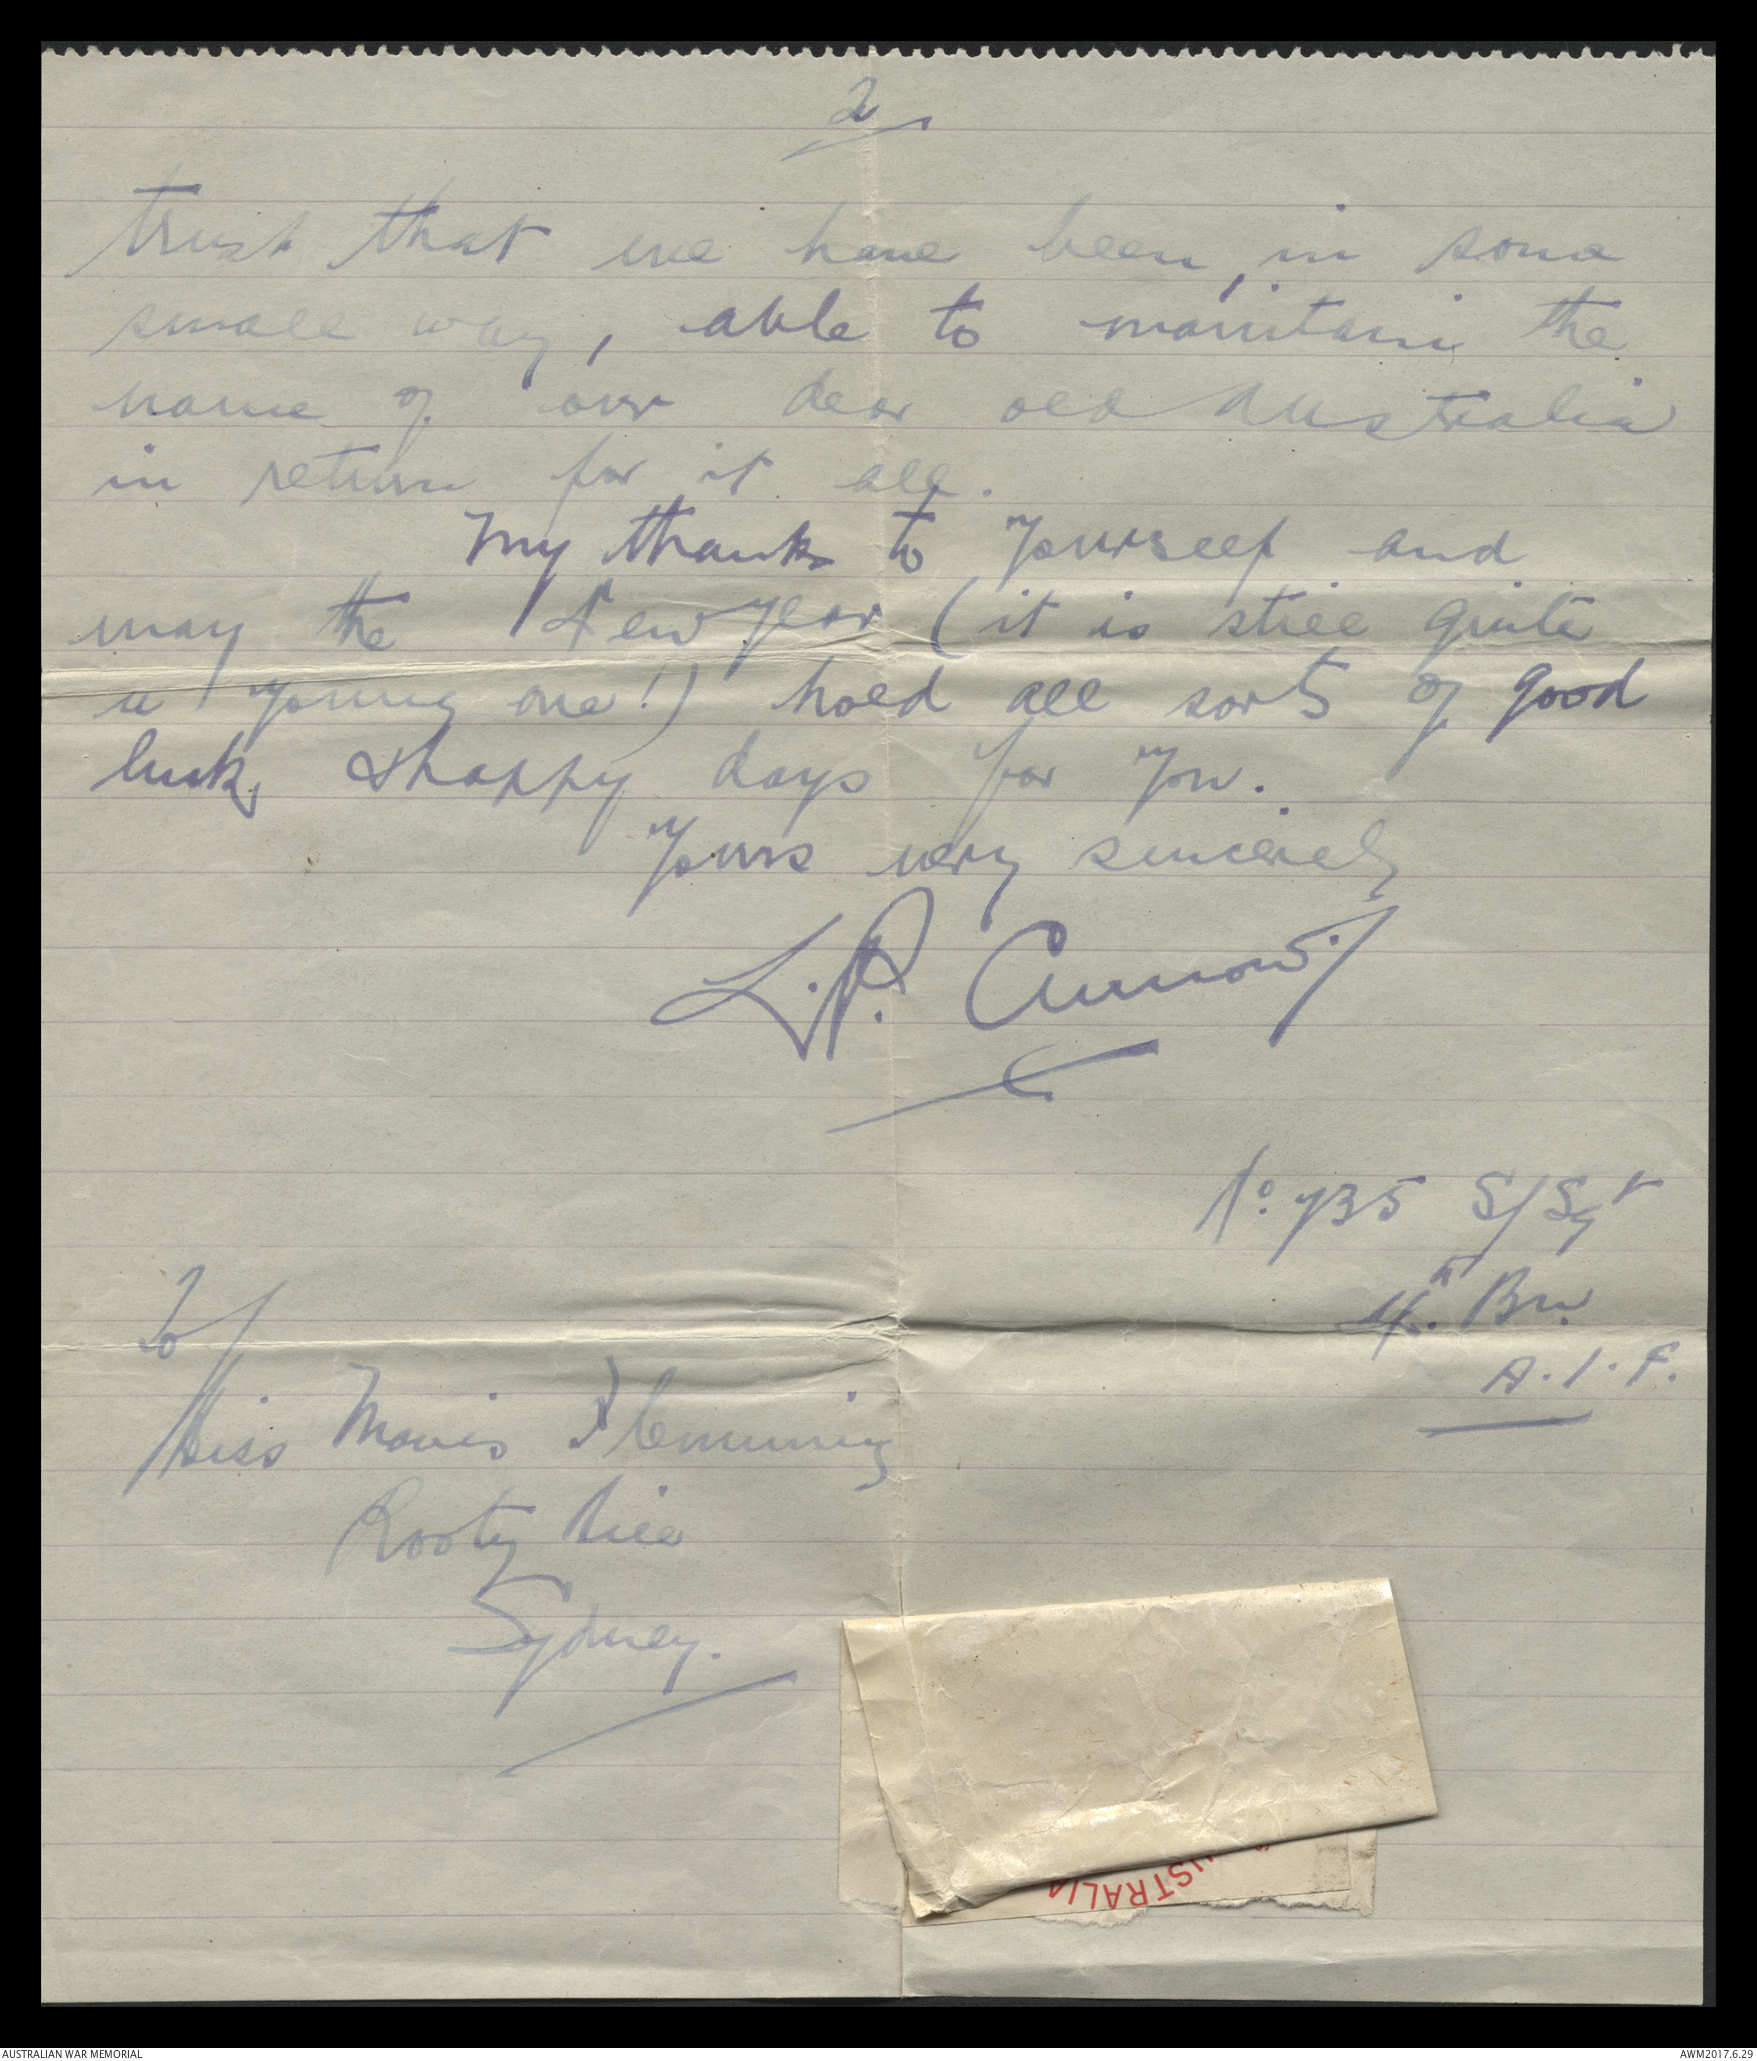 2
trust that we have been, in some
small way, able to maintain the
name of our dear old Australia
in return for it all.
My thanks to yourself and
may the New Year (it is still quite
a young one!) hold all sorts of good
luck, & happy days for you.
Yours very sincerely
L.P. Curnow.
No. 735 S/Sgt
4th. Bn.
A.I.F.
To/
Miss Mavis Flemming
Rooty Hill
Sydney.
AUSTRALIA
AUSTRALIAN WAR MEMORIAL
AWM2017.6.29